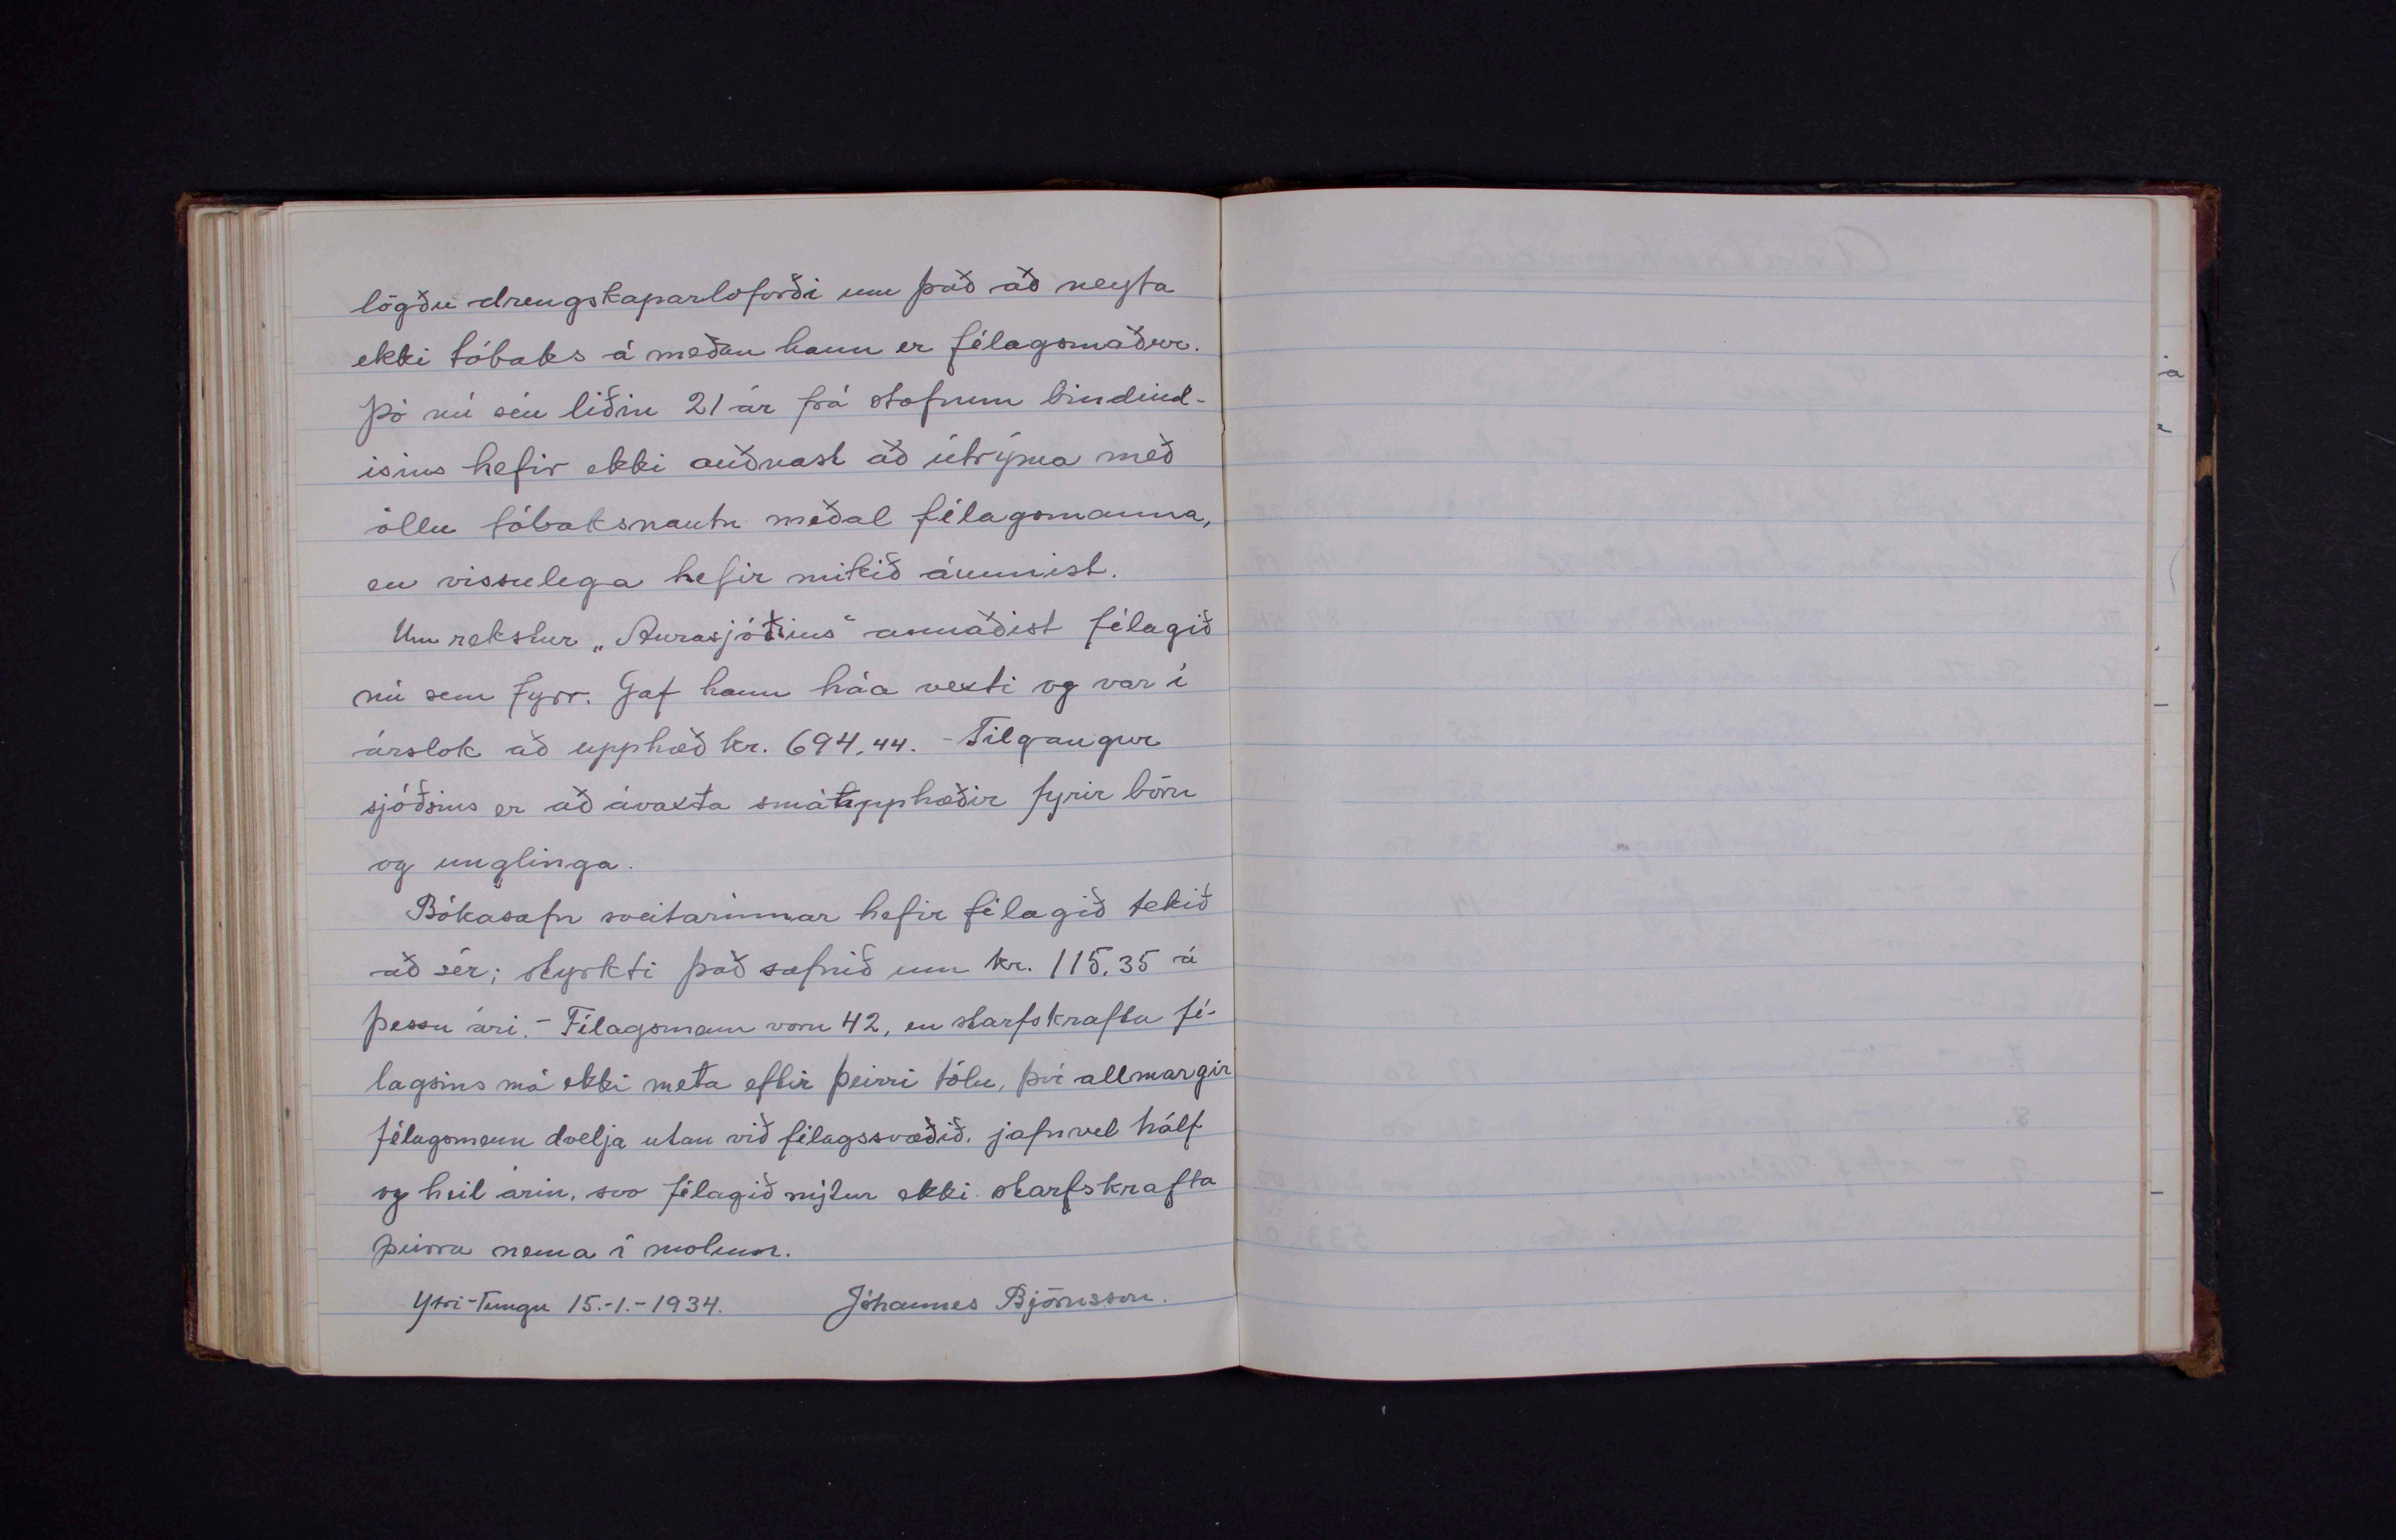 lögðu drengskaparloforði um það að neyta
ekki tóbaks á meðan hann er félagsmaður.
Þó nú séu liðin 21 ár frá stofnun bindind-
isins hefir ekki auðnast að útrýma með
öllu tóbaksnautn meðal félagsmanna,
en vissulega hefir mikið áunnist.
Um rekstur „Aurasjóðsins" annaðist félagið
nú sem fyrr. Gaf hann háa vexti og var í
árslok að upphæð kr. 694,44. - Tilgangur
sjóðsins er að ávaxta smáupphæðir fyrir börn
og unglinga.
Bókasafn sveitarinnar hefir félagið tekið
að sér; styrkti það safnið um kr. 115,35 á
þessu ári. - Félagsmenn voru 42, en starfskrafta fé-
lagsins má ekki meta eftir þeirri tölu, því allmargir
félagsmenn dvelja utan við félagssvæðið, jafnvel hálf
og heil árin, svo félagið nýtur ekki starfskrafta
þeirra nema í molum.
Ytri-Tungu 15.-1.-1934. Jóhannes Björnsson.